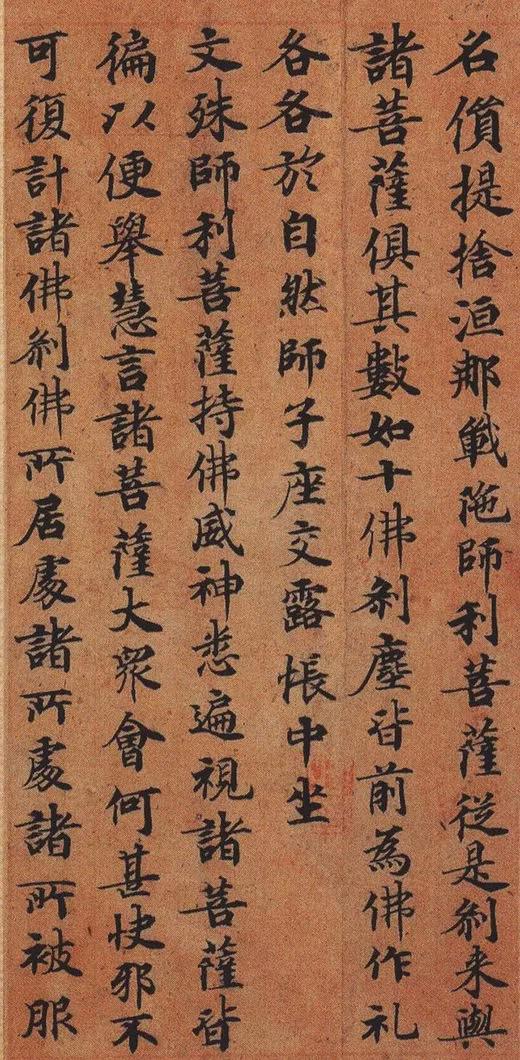 名儨提捨洹那戰陁師利菩薩從是刹来與
諸菩薩俱其數如十佛刹塵皆前為佛作礼
各各於自然師子座交露帳中坐
文殊師利菩薩持佛威神悉遍視諸菩薩皆
徧以便舉慧言諸菩薩大眾會何甚快邪不
可復計諸佛刹佛所居處諸所處諸所被服